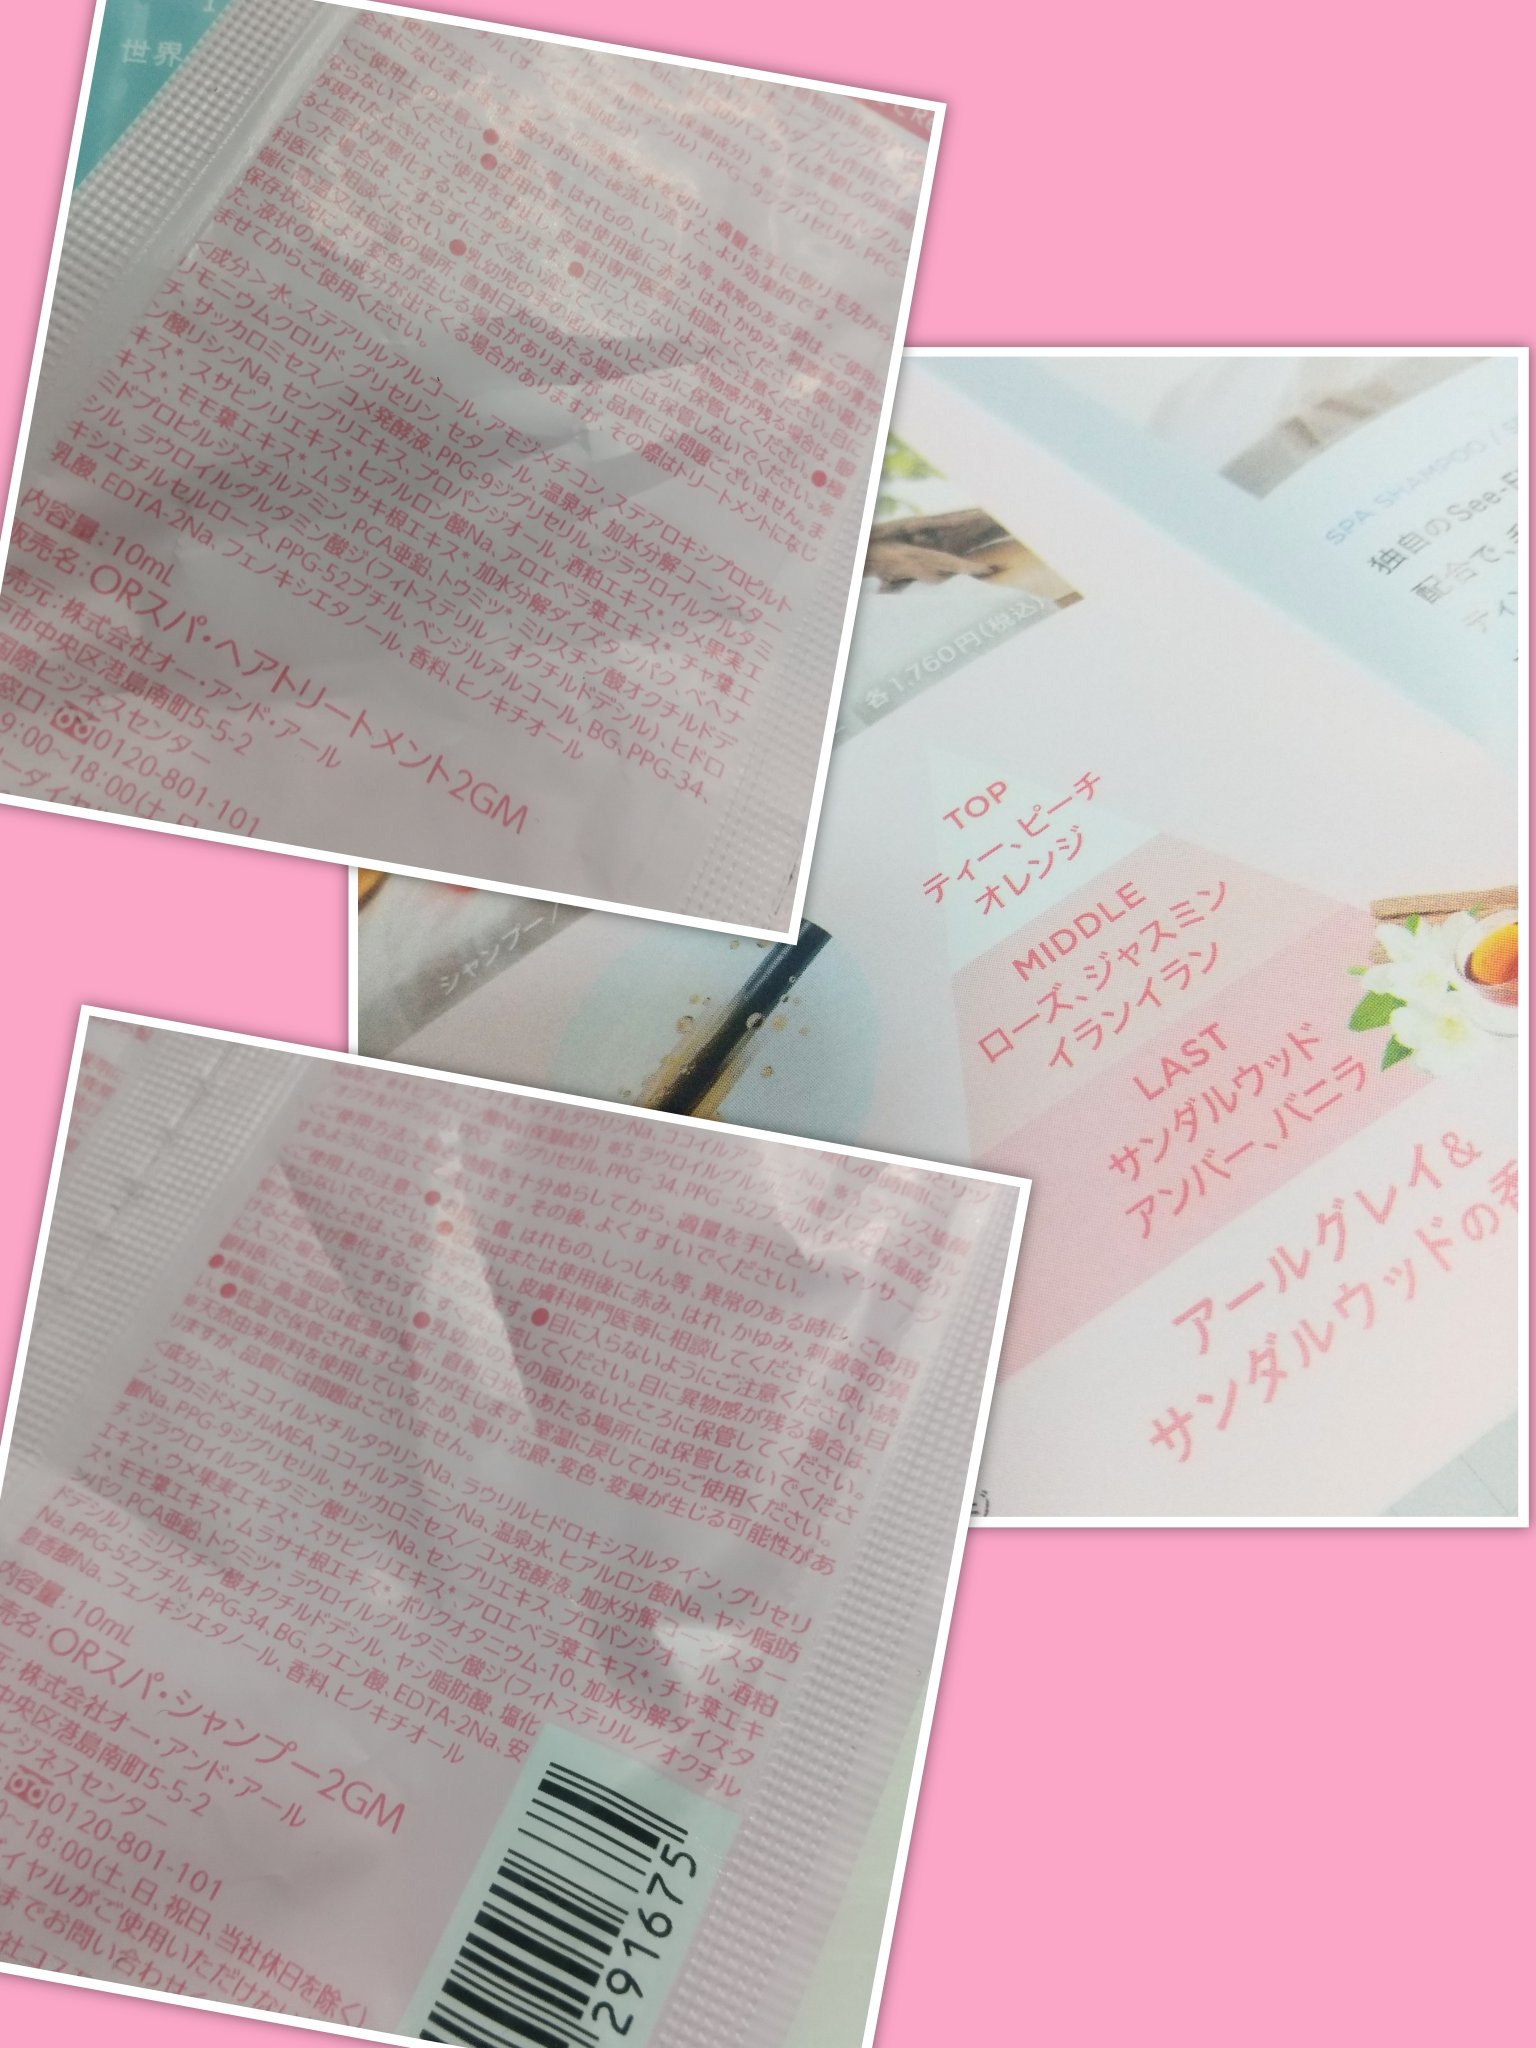 世界
全体になじませます。数分おいた後洗い流すと、より効果的です。
<ご使用上の注意>●お肌に傷、はれもの、しっしん等、異常のある時は、ご使用に
ならないでください。●使用中または使用後に赤み、はれ、かゆみ、刺激等の異常
が現れたときは、ご使用を中止し、皮膚科専門医等に相談してください。使い続け
ると症状が悪化することがあります。●目に入らないようにご注意ください。目に
入った場合は、こすらずにすぐ洗い流してください。目に異物感が残る場合は、眼
科医にご相談ください。●乳幼児の手の届かないところに保管してください。●極
端に高温又は低温の場所、直射日光のあたる場所には保管しないでください。※
保存状況により変色が生じる場合がありますが、品質には問題ございません。ま
た、液状の潤い成分が出てくる場合がありますが、その際はトリートメントになじ
ませてからご使用ください。
<成分>水、ステアリルアルコール、アモジメチコン、ステアロキシプロピルト
リモニウムクロリド、グリセリン、セタノール、温泉水、加水分解コーンスター
チ、サッカロミセス/コメ発酵液、PPG-9ジグリセリル、ジラウロイルグルタミ
ン酸リシンNa、センブリエキス、プロパンジオール、酒粕エキス*、ウメ果実エ
キス*、スサビノリエキス*、ヒアルロン酸Na、アロエベラ葉エキス*、チャ葉エ
キス*、モモ葉エキス*、ムラサキ根エキス*、加水分解ダイズタンパク、ベヘナ
ミドプロピルジメチルアミン、PCA亜鉛、トウミツ*、ミリスチン酸オクチルドデ
シル、ラウロイルグルタミン酸ジ(フィトステリル/オクチルドデシル)、ヒドロ
キシエチルセルロース、PPG-52ブチル、ベンジルアルコール、BG、PPG-34、
乳酸、EDTA-2Na、フェノキシエタノール、香料、ヒノキチオール
内容量:10mL
販売名:ORスパ・ヘアトリートメント2GM
売元:株式会社オー・アンド・アール
戸市中央区港島南町5-5-2
国際ビジネスセンター
窓口:0120-801-101
9:00~18:00(土、日
SPA SHAMPOO /
独自のSee-
配合で、
ティン
各1,760円(税込)
シャンプー/
TOP
ティー、ピーチ
オレンジ
MIDDLE
ローズ、ジャスミン
イランイラン
LAST
サンダルウッド
アンバー、バニラ
アールグレイ&
サンダルウッドの香
<ご使用方法>髪と地肌を十分ぬらしてから、適量を手にとり、マッサージ
するように泡立て洗います。その後、よくすすいでください。
<ご使用上の注意>●お肌に傷、はれもの、しっしん等、異常のある時は、ご使用
にならないでください。●使用中または使用後に赤み、はれ、かゆみ、刺激等の異
常が現れたときは、ご使用を中止し、皮膚科専門医等に相談してください。使い続
けると症状が悪化することがあります。●目に入らないようにご注意ください。目
に入った場合は、こすらずにすぐ洗い流してください。目に異物感が残る場合は、
眼科医にご相談ください。●乳幼児の手の届かないところに保管してください。
●極端に高温又は低温の場所、直射日光のあたる場所には保管しないでくださ
い。●低温で保管されますと濁りが生じます。室温に戻してからご使用ください。
※天然由来原料を使用しているため、濁り・沈殿・変色・変臭が生じる可能性があ
りますが、品質には問題はございません。
<成分>水、ココイルメチルタウリンNa、ラウリルヒドロキシスルタイン、グリセリ
ン、コカミドメチルMEA、ココイルアラニンNa、温泉水、ヒアルロン酸Na、ヤシ脂肪
酸Na、PPG-9ジグリセリル、サッカロミセス/コメ発酵液、加水分解コーンスター
チ、ジラウロイルグルタミン酸リシンNa、センブリエキス、プロパンジオール、酒粕
エキス*、ウメ果実エキス*、スサビノリエキス*、アロエベラ葉エキス*、チャ葉エキ
ス*、モモ葉エキス*、ムラサキ根エキス*、ポリクオタニウム-10、加水分解ダイズタ
ンパク、PCA亜鉛、トウミツ*、ラウロイルグルタミン酸ジ(フィトステリル/オクチル
ドデシル)、ミリスチン酸オクチルドデシル、ヤシ脂肪酸、塩化
Na、PPG-52ブチル、PPG-34、BG、クエン酸、EDTA-2Na、安
息香酸Na、フェノキシエタノール、香料、ヒノキチオール
内容量:10mL
売名:ORスパ・シャンプー2GM
元:株式会社オー・アンド・アール
中央区港島南町5-5-2
ビジネスセンター
0120-801-101
0~18:00(土、日、祝日、当社休日を除く)
イヤルがご使用いただけない
までお問い合わせ
291675